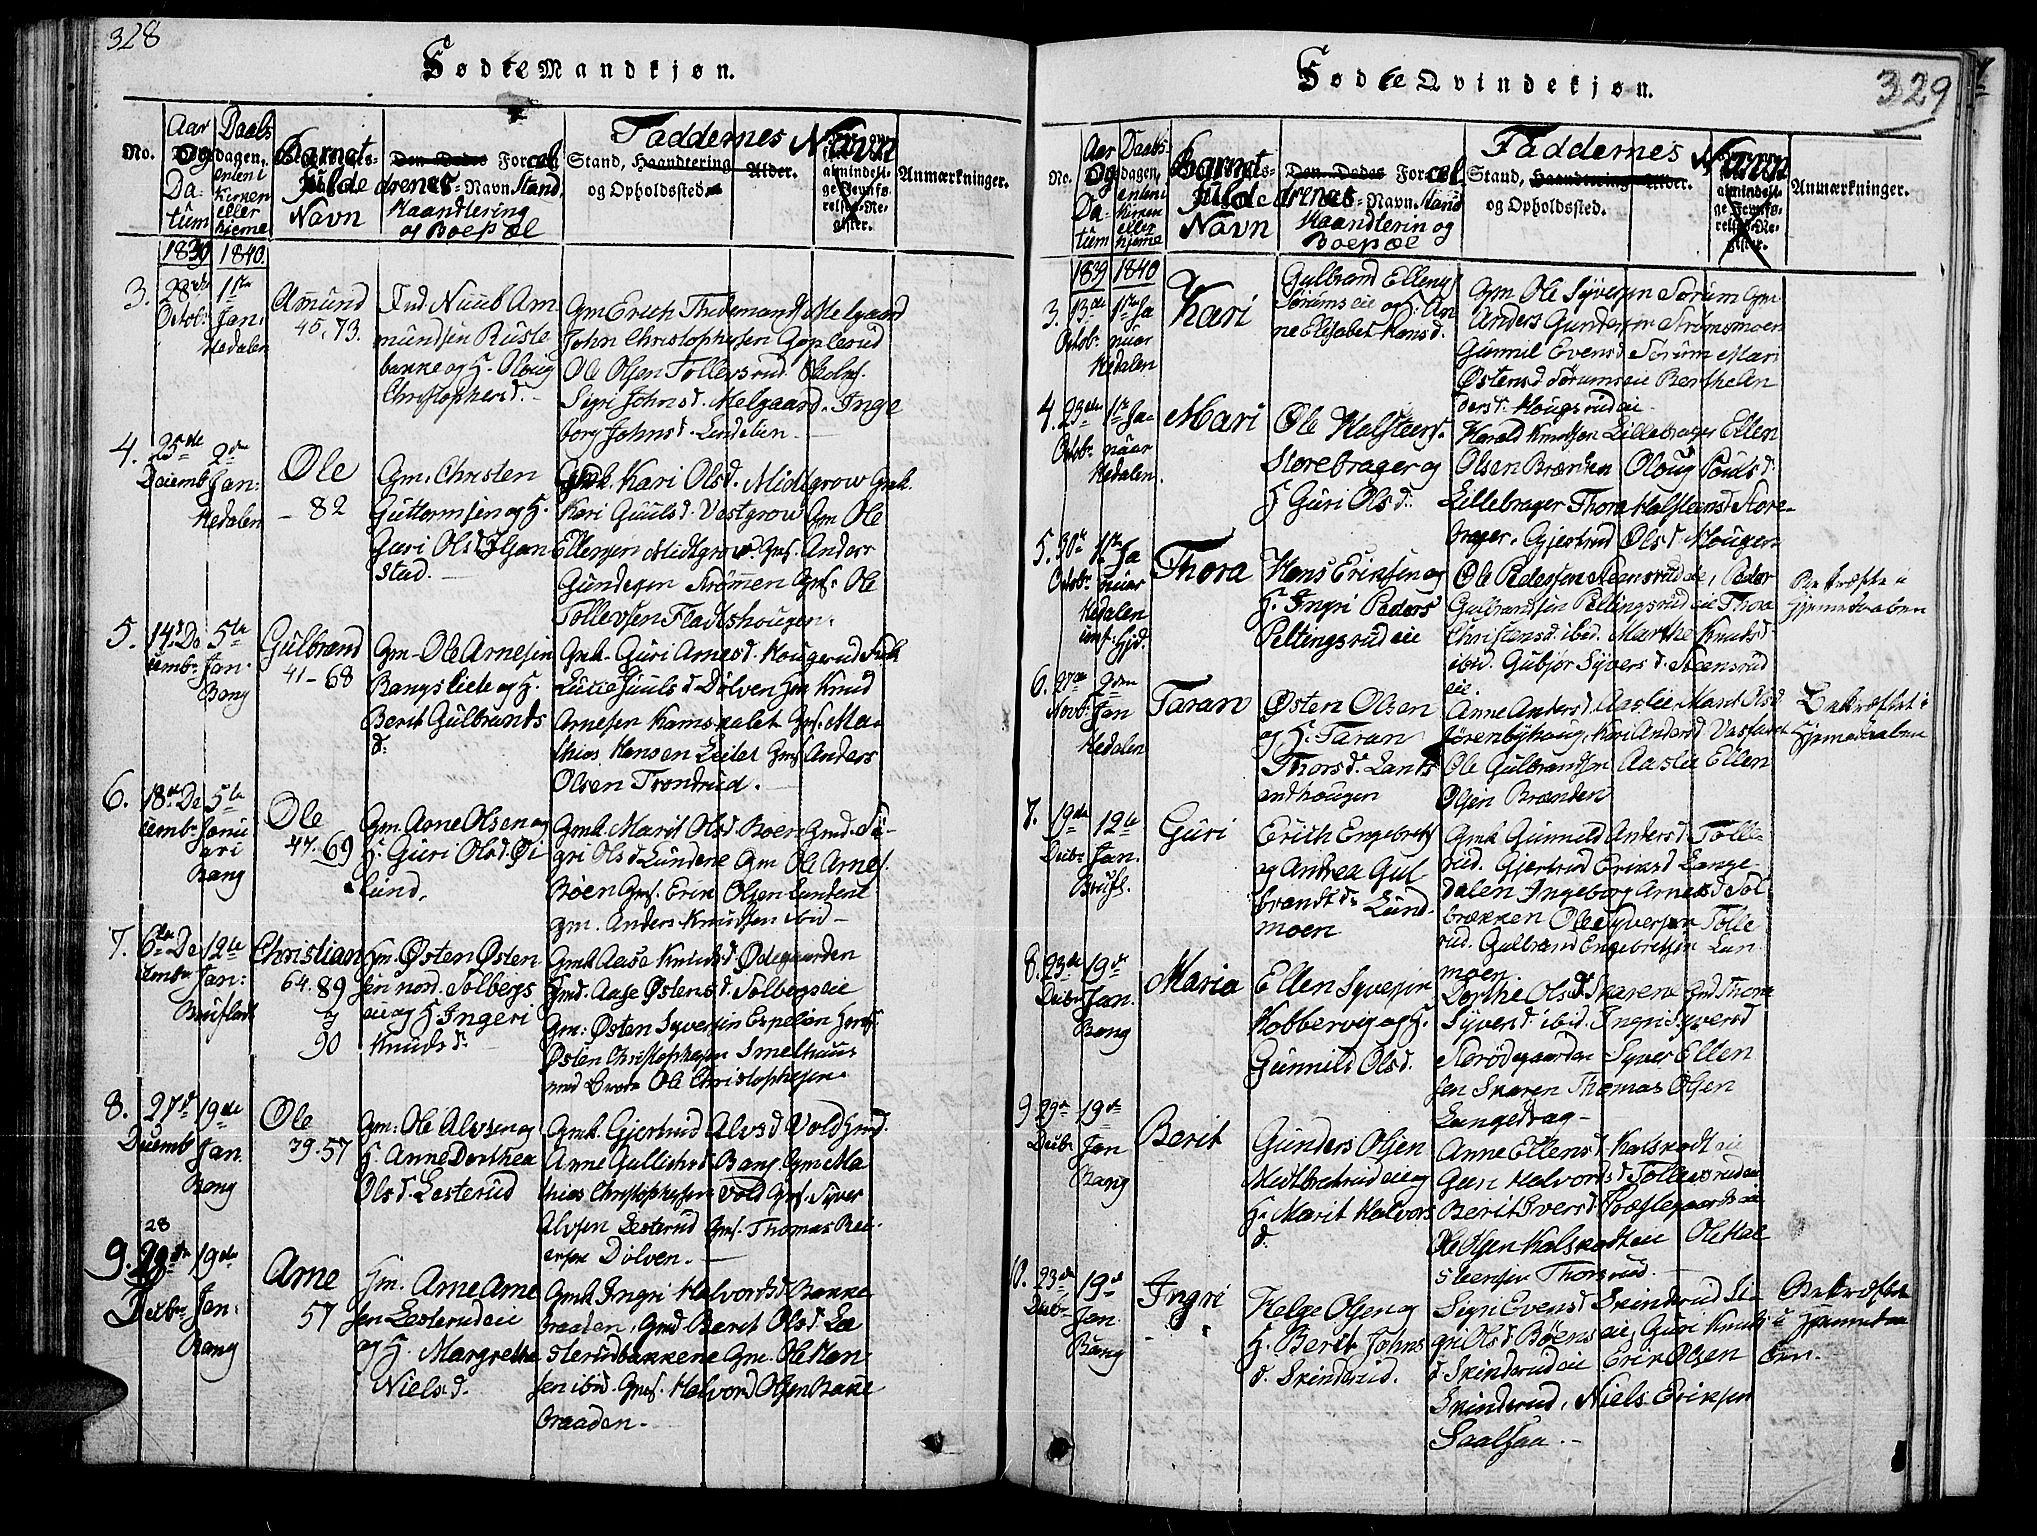 328
Fødte Mandkjøn.
No.
Aar og Datum
Daabsdagen, enten i Kirken eller hjeme
Barnet fulde Navn
Den Dødes Forældrenes Navn Stand, Haandtering og Boepæl
Faddernes Navn
Stand, Haandtering og Opholdssted.
Alder.
Anmærkninger.
1839 1840.
3. 28de Octob. 1ste Jan: Hedalen
Amund
45, 73.
Ind Nuub Am
mundsen Rustebakke og H. Oloug
Christophersd.
Gm Erich Thidemands Melgaard
John Christophersen Goplerud
Ole Olsen Tollefsrud.
Sigri Johnsd. Melgaard. Inge
borg Johnsd. Lindelien
4. 25de Decemb 2den Jan: Hedalen
Ole
82
Gm. Christen
Guttormsen og H.
Guri Olsd.
stad.
Gmk. Kari Olsd. Midtgrov Gmk.
Kari Juulsd. Vestgrov Gm Ole
Ellensen Midtgrov. Gmf. Anders
Gundersen Strømmen Gmf. Ole
Tollevsen Fladtshougen.
5. 14de December 5te Jan. Bang
Gulbrand
41-68
Gm. Ole Arnesen
Bangs Leie og H.
Berit Gulbrands
d:
Gmk. Guri Arnesd. Hougerud
Lucie Juulsd Dølven Knud
Arnesen Kamskalet Gmf. Ma-
thias Hansen Leilet Gmf Anders
Olsen Trondrud.
6. 18de December 5te Januari Bang
Ole
47. 69
Gm. Arne Olsen og
H. Guri Olsd. Øi
lund.
Gmk. Marit Olsd. Boen Gmd. Si-
gri Olsd Lundene Gm Ole Arnes.
Bøen Gmf. Erik Olsen Lundene
gm. Anders Knudsen ibid-
7. 6te December 12te Jan: Bruflat
Christian
64. 89
90
Gm. Østen Østen
sen nord. Solbergs
eie og H Ingeri
Knudsd:
Gmk Aase Knudsd. Ødegaarden
Gmd. Aase Østensd. Solbergseie
Gm: Østen Syversen Espelien
Østen Christophersen Smelhuus
med Broder Ole Christophersen.
8. 27de Decemb 19de Jan. Bang
Ole
39. 57
Gm: Ole Alvsen og
H. Anne Dorthea
Olsd. Lesterud
Gmk. Gjertrud Alvsd Vold Gmd.
Anne Gulliksd. Bang. Gm Ma
thias Christophersen Vold Gmf. Syver
Alvsen Lesterud Gmf. Thomas Rei-
ersen Dølven.
28
9. 29de Decbr 19de Jan: Bang
Arne
57
Gm. Arne Arne
sen Lesterudeie
og H. Margrethe
Nielsd.
Gmk Ingri Halvorsd Bakke
braaden, Gmd. Berit Olsd. Le
sterudbakkene Gm. Ole Han-
sen ibid. Gmf. Halvord Olsen Bakke
braaden.
329
Fødte Qvindekjøn.
No.
Aar og Datum
Daabsdagen, enten i Kirken eller hjeme
Barnet fulde Navn
Den Dødes Forældrenes Navn, Stand Haandtering og Boepæl
Faddernes Navn
Stand, Haandtering og Opholdssted.
Alder.
Anmærkninger.
1839 1840
3. 13de Octob. 1ste Januar Hedalen
Kari
Gulbrand Ellens
Sørums eie og H. An
ne Elisabet Hansd.
Gm Ole Syversen Sørum Gm
Anders Gundersen Strømsmoen
Gunnil Evensd. Sørum Mari
Østensd Sørumseie Berthe An
dersd. Hougsrudeie.
4. 23de Octob. 1ste Januar Hedalen.
Mari
Ole Halsteens.
Storebrager og
H Guri Olsd.
Harald Knudsen Lillebrager Ellen
Olsen Brænden Oloug Poulsd.
Lillebrager Thora Halsteensd Store-
brager, Gjertrud Olsd. Hougen
5. 30te Octob. 1ste Januar Hedalen
Thora
Hans Eriksen og
H. Ingri Peders
Peltingsrudeie
Ole Pedersen Steensrudeie, Peder
Gulbrandsen Peltingsrudeie Thora
Christensd. ibid. Marthe Knudsd.
ibid. Gubjør Syversd. Steensrud
eie.
Bekræftet i
Hjemmedaaben
6. 27de Novb. 2den Jan Hedalen
Taran
Østen Olsen
og H. Taran
Thorsd. Lands
endhougen
Anne Andersd. Aaslie, Marit Olsd
Jørenbyhoug, Kari Andersd. Vasfaret
Ole Gulbrandsen Aaslie Ellen
Olsen Brænden
Bekræftet i
Hjemmedaaben
7. 19de Decbr 12te Jan. Brufl.
Guri
Erich Engebrets
og Andrea Gul
brandsd: Lund
moen
Gmk Gunnild Andersd. Tolle-
rud. Gjertrud Eriksd Lange-
dalen Ingeborg Arnesd. Sol
brækken Ole Syversen Tolle
rud. Gulbrand Engebretsen Lun-
moen.
8. 23de Decbr 19de Jan. Bang
Maria
Ellen Syversen
Kobbervig og H.
Gunnild Olsd.
Dorthe Olsd. Skaren Gmd Thora
Syversd. ibid. Ingri Syversd
Storødegaarden Syver Ellen
sen Skaren Thomas Olsen
Langedrag-
9 29de Decbr 19de Jan Bang
Berit
Gunders Olsen
Midtbødrudeie og
H. Marit Halvors
d.
Anne Ellensd. Kalskodteie
Guri Halvorsd. Tollevsrudeie
Berit Iversd. Præstegaardseie
Ole Olsen Kalskodteie Ole Hal
steensen Thorsrud.
10. 23de Decbr 19de Jan. Bang
Ingri
Helge Olsen og
H. Berit Johns
d. Skinderud.
Sigri Evensd Skinderud Si-
gri Olsd Bøenseie, Guri Knuds
d. Skinderudeie Erik Olsen
Skinderud, Niels Eriksen
Saalsaa.
Bekræftet
i Hjemmedaa
ben.